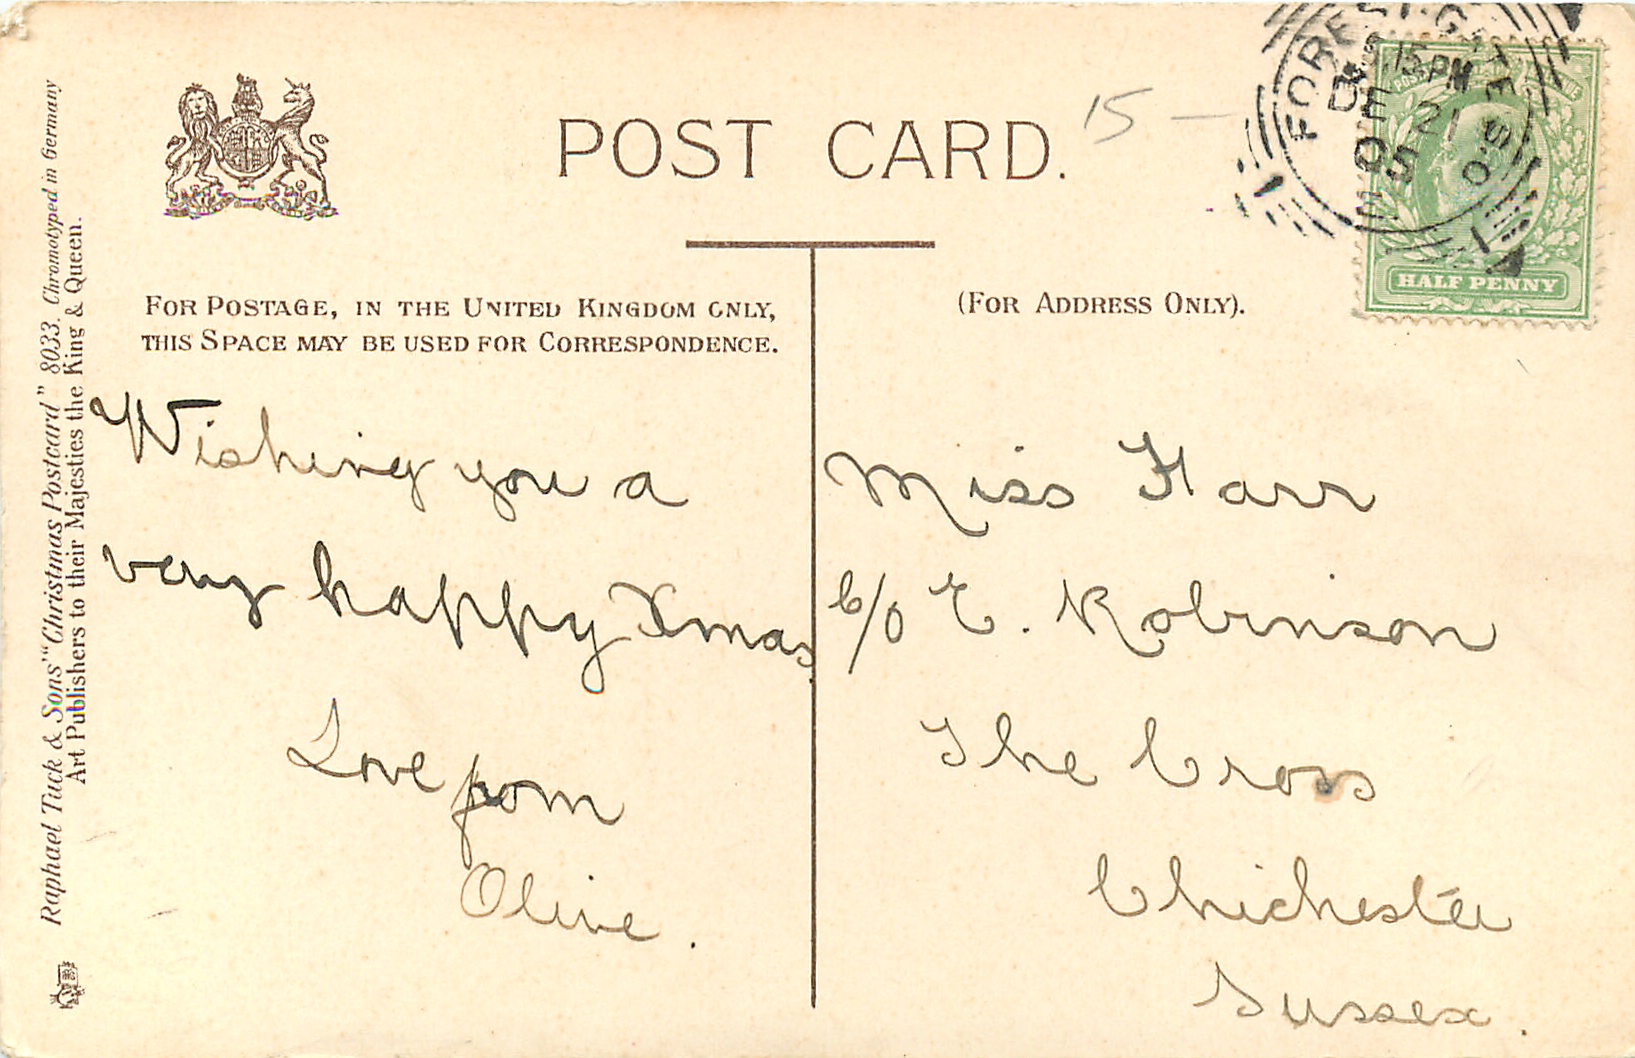 POST CARD.
15 –
FOREST GATE S.O.
.15 PM
DE 21
05
HALF PENNY
FOR POSTAGE, IN THE UNITED KINGDOM ONLY,
THIS SPACE MAY BE USED FOR CORRESPONDENCE.
(FOR ADDRESS ONLY).
Wishing you a
very happy Xmas
Love from
Olive.
Miss Farr
C/O E. Robinson
The Cross
Chichester
Sussex.
Raphael Tuck & Sons' "Christmas Postcard" 8033. Chromotyped in Germany
Art Publishers to their Majesties the King & Queen.